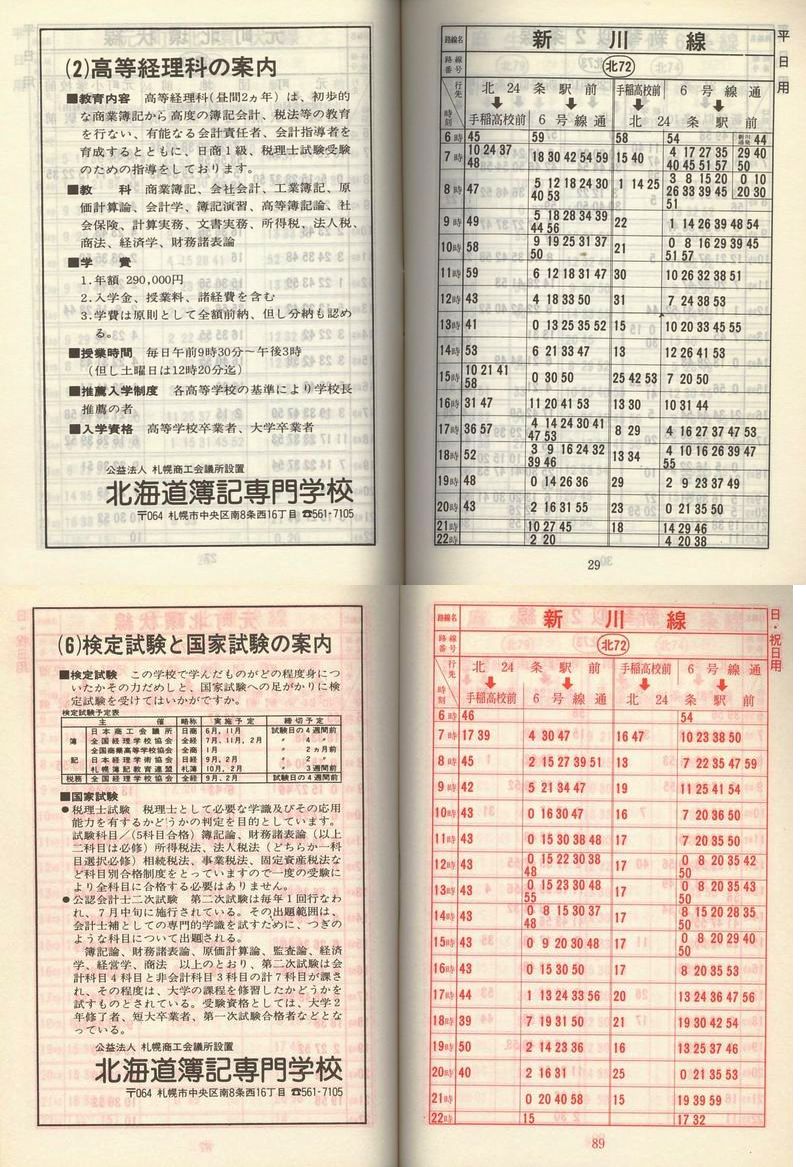 (2)高等経理科の案内
■教育内容 高等経理科(昼間2ヵ年)は、初歩的
な商業簿記から高度の簿記会計、税法等の教育
を行ない、有能なる会計責任者、会計指導者を
育成するとともに、日商1級、税理士試験受験
のための指導をしております。
■教 科 商業簿記、会社会計、工業簿記、原
価計算論、会計学、簿記演習、高等簿記論、社
会保険、計算実務、文書実務、所得税、法人税、
商法、経済学、財務諸表論
■学 費
1.年額 290,000円
2.入学金、授業料、諸経費を含む
3.学費は原則として全額前納、但し分納も認め
る。
■授業時間 毎日午前9時30分〜午後3時
(但し土曜日は12時20分迄)
■推薦入学制度 各高等学校の基準により学校長
推薦の者
■入学資格 高等学校卒業者、大学卒業者
公益法人 札幌商工会議所設置
北海道簿記専門学校
〒064 札幌市中央区南8条西16丁目 ☎561-7105
平日用
路線名 新川線
路線番号 北72
行先 時刻
北24条駅前 手稲高校前 6号線通
手稲高校前 6号線通 北24条駅前
6時 45 59 58 54 44
7時 10 24 37 48 18 30 42 54 59 15 40 4 17 27 35 40 45 51 57 29 40 50
8時 47 5 12 18 24 30 40 53 1 14 25 3 8 15 20 26 33 39 45 51 0 10 20 30
9時 49 5 18 28 34 39 44 56 22 1 14 26 39 48 54
10時 58 9 19 25 31 37 50 21 0 8 16 29 39 45 51 57
11時 59 6 12 18 31 47 30 10 26 32 38 51
12時 43 4 18 33 50 31 7 24 38 53
13時 41 0 13 25 35 52 15 10 20 33 45 55
14時 53 6 21 33 47 13 12 26 41 53
15時 10 21 41 58 0 30 50 25 42 53 7 20 50
16時 31 47 11 20 41 53 13 30 10 31 44
17時 36 57 4 14 24 30 41 47 53 8 29 4 16 27 37 47 53
18時 52 3 9 16 24 32 39 46 13 34 4 10 16 26 39 47 55
19時 48 0 14 26 36 29 2 9 23 37 49
20時 43 2 16 31 55 23 0 21 35 50
21時 10 27 45 18 14 29 46
22時 2 20 4 20 38
29
(6)検定試験と国家試験の案内
■検定試験 この学校で学んだものがどの程度身につ
いたかその力だめしと、国家試験への足がかりに検
定試験を受けてはいかがですか。
検定試験予定表
主催 略称 実施予定 締切予定
簿記 日本商工会議所 日商 6月,11月 試験日の4週間前
全国経理学校協会 全経 7月,11月,2月 〃 4 〃
全国商業高等学校協会 全商 1月 〃 2ヵ月前
日本経理学術協会 日経 9月,2月 〃 2 〃
札幌簿記教育連盟 札簿 10月,2月 〃 3週間前
税務 全国経理学校協会 全経 9月,2月 試験日の4週間前
■国家試験
●税理士試験 税理士として必要な学識及びその応用
能力を有するかどうかの判定を目的としています。
試験科目/(5科目合格)簿記論、財務諸表論(以上
二科目は必修)所得税、法人税(どちらか一科
目選択必修)相続税法、事業税法、固定資産税法な
ど科目別合格制度をとっていますので一度の受験に
より全科目に合格する必要はありません。
●公認会計士二次試験 第二次試験は毎年1回行なわ
れ、7月中旬に施行されている。その出題範囲は、
会計士補としての専門的学識を試すために、つぎの
ような科目について出題される。
簿記論、財務諸表論、原価計算論、監査論、経済
学、経営学、商法 以上のとおり、第二次試験は会
計科目4科目と非会計科目3科目の計7科目が課さ
れ、その程度は、大学の課程を修習したかどうかを
試すものとされている。受験資格としては、大学2
年修了者、短大卒業者、第一次試験合格者などとな
っている。
公益法人 札幌商工会議所設置
北海道簿記専門学校
〒064 札幌市中央区南8条西16丁目 ☎561-7105
日・祝日用
路線名 新川線
路線番号 北72
行先 時刻
北24条駅前 手稲高校前 6号線通
手稲高校前 6号線通 北24条駅前
6時 46 54
7時 17 39 4 30 47 16 47 10 23 38 50
8時 45 2 15 27 39 51 13 7 22 35 47 59
9時 42 5 21 34 47 19 11 25 41 54
10時 43 0 16 30 47 16 7 20 36 50
11時 43 0 15 30 38 48 17 7 20 35 50
12時 43 0 15 22 30 38 48 17 0 8 20 35 42 50
13時 43 0 15 23 30 48 55 17 0 8 20 35 43 50
14時 43 0 8 15 30 37 48 17 8 15 20 28 35 50
15時 43 0 9 20 30 48 17 0 8 20 29 40 50
16時 43 0 15 30 50 17 8 20 35 53
17時 44 1 13 24 33 56 20 13 24 36 47 56
18時 39 7 19 31 50 21 19 30 42 54
19時 50 2 14 23 36 16 13 25 37 46
20時 40 2 16 31 25 0 21 35 53
21時 0 20 40 58 15 19 39 59
22時 15 17 32
89